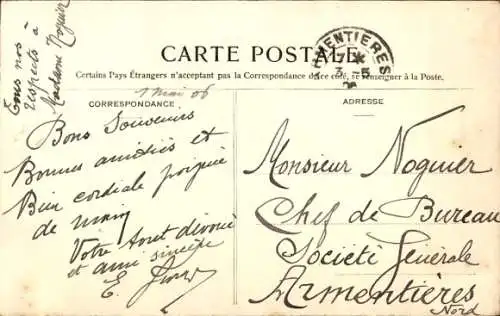 Tous nos
respects à
Madame Noguier
CARTE POSTALE
Certains Pays Étrangers n'acceptant pas la Correspondance de ce côté, se renseigner à la Poste.
CORRESPONDANCE
1 Mai 06
ADRESSE
ARMENTIERES
Bons Souvenirs
Bonnes amitiés et
Bien cordiale poignée
de main
Votre dévoué
et ami sincère
E.
Monsieur Noguier
Chef de Bureau
Société Générale
Armentières
Nord